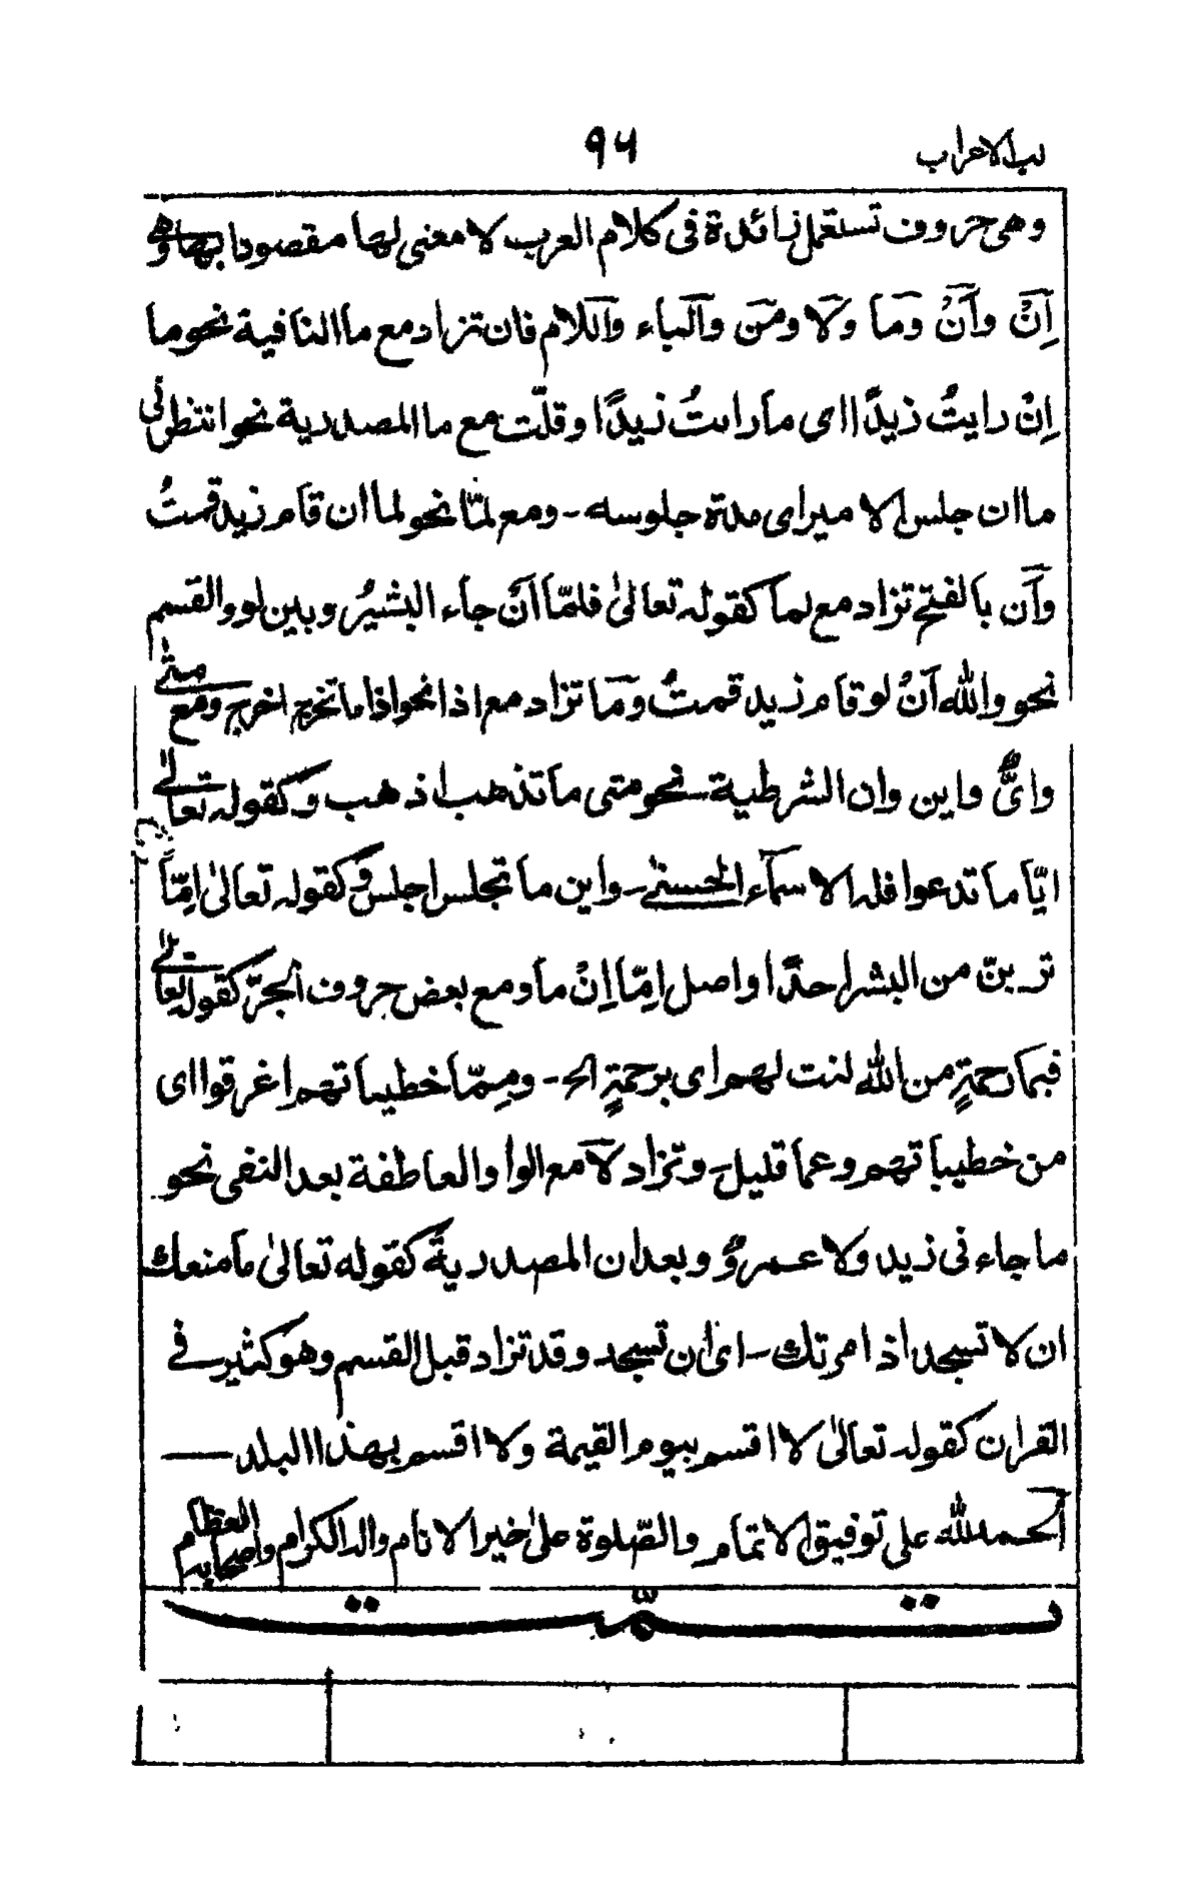 لب الاعراب ٩٦
وهى حروف تستعمل زائدة فى كلام العرب لا معنى لها مقصودا بها وهى
اِنْ وأَنْ ومَا ولَا ومَن والباء واللام فان تزاد مع ما النافية نحو ما
اِنْ رايتُ زيدًا اى ما رايتُ زيدًا وقلّت مع ما المصدرية نحو انتظرنى
ما ان جلس الامير اى مدة جلوسه - ومع لمّا نحو لما ان قام زيد قمتُ
وأَن بالفتح تزاد مع لما كقوله تعالىٰ فلمّا اَنْ جاء البشيرُ وبين لو والقسم
نحو والله اَنْ لو قام زيد قمتُ ومَا تزاد مع اذا نحو اذا ما تخرج اخرج ومع متٰى
واىٌّ واين وان الشرطية نحو متى ما تذهب اذهب وكقوله تعالٰے
ايّا ما تدعوا فله الاسمآء الحسنٰے - واين ما تجلس اجلس وكقوله تعالىٰ اِمّا
ترينّ من البشر احدًا واصل اِمّا اِنْ ما ومع بعض حروف الجرّ كقوله تعالٰے
فبما رحمةٍ من الله لنت لهم اى برحمةٍ الخ - ومِمّا خطيباتهم اغرقوا اى
من خطيباتهم وعما قليل - وتزاد لَا مع الواو العاطفة بعد النفى نحو
ما جاءنى زيد ولا عمروٌ وبعد ان المصدرية كقوله تعالىٰ ما منعك
ان لا تسجد اذ امرتك - اى ان تسجد وقد تزاد قبل القسم وهو كثير فے
القران كقوله تعالىٰ لا اقسم بيوم القيمة ولا اقسم بهذا البلد ـــ
الحمد لله على توفيق الاتمام والصّلوة علىٰ خير الانام واله الكرام واصحابه العظام
تمّت